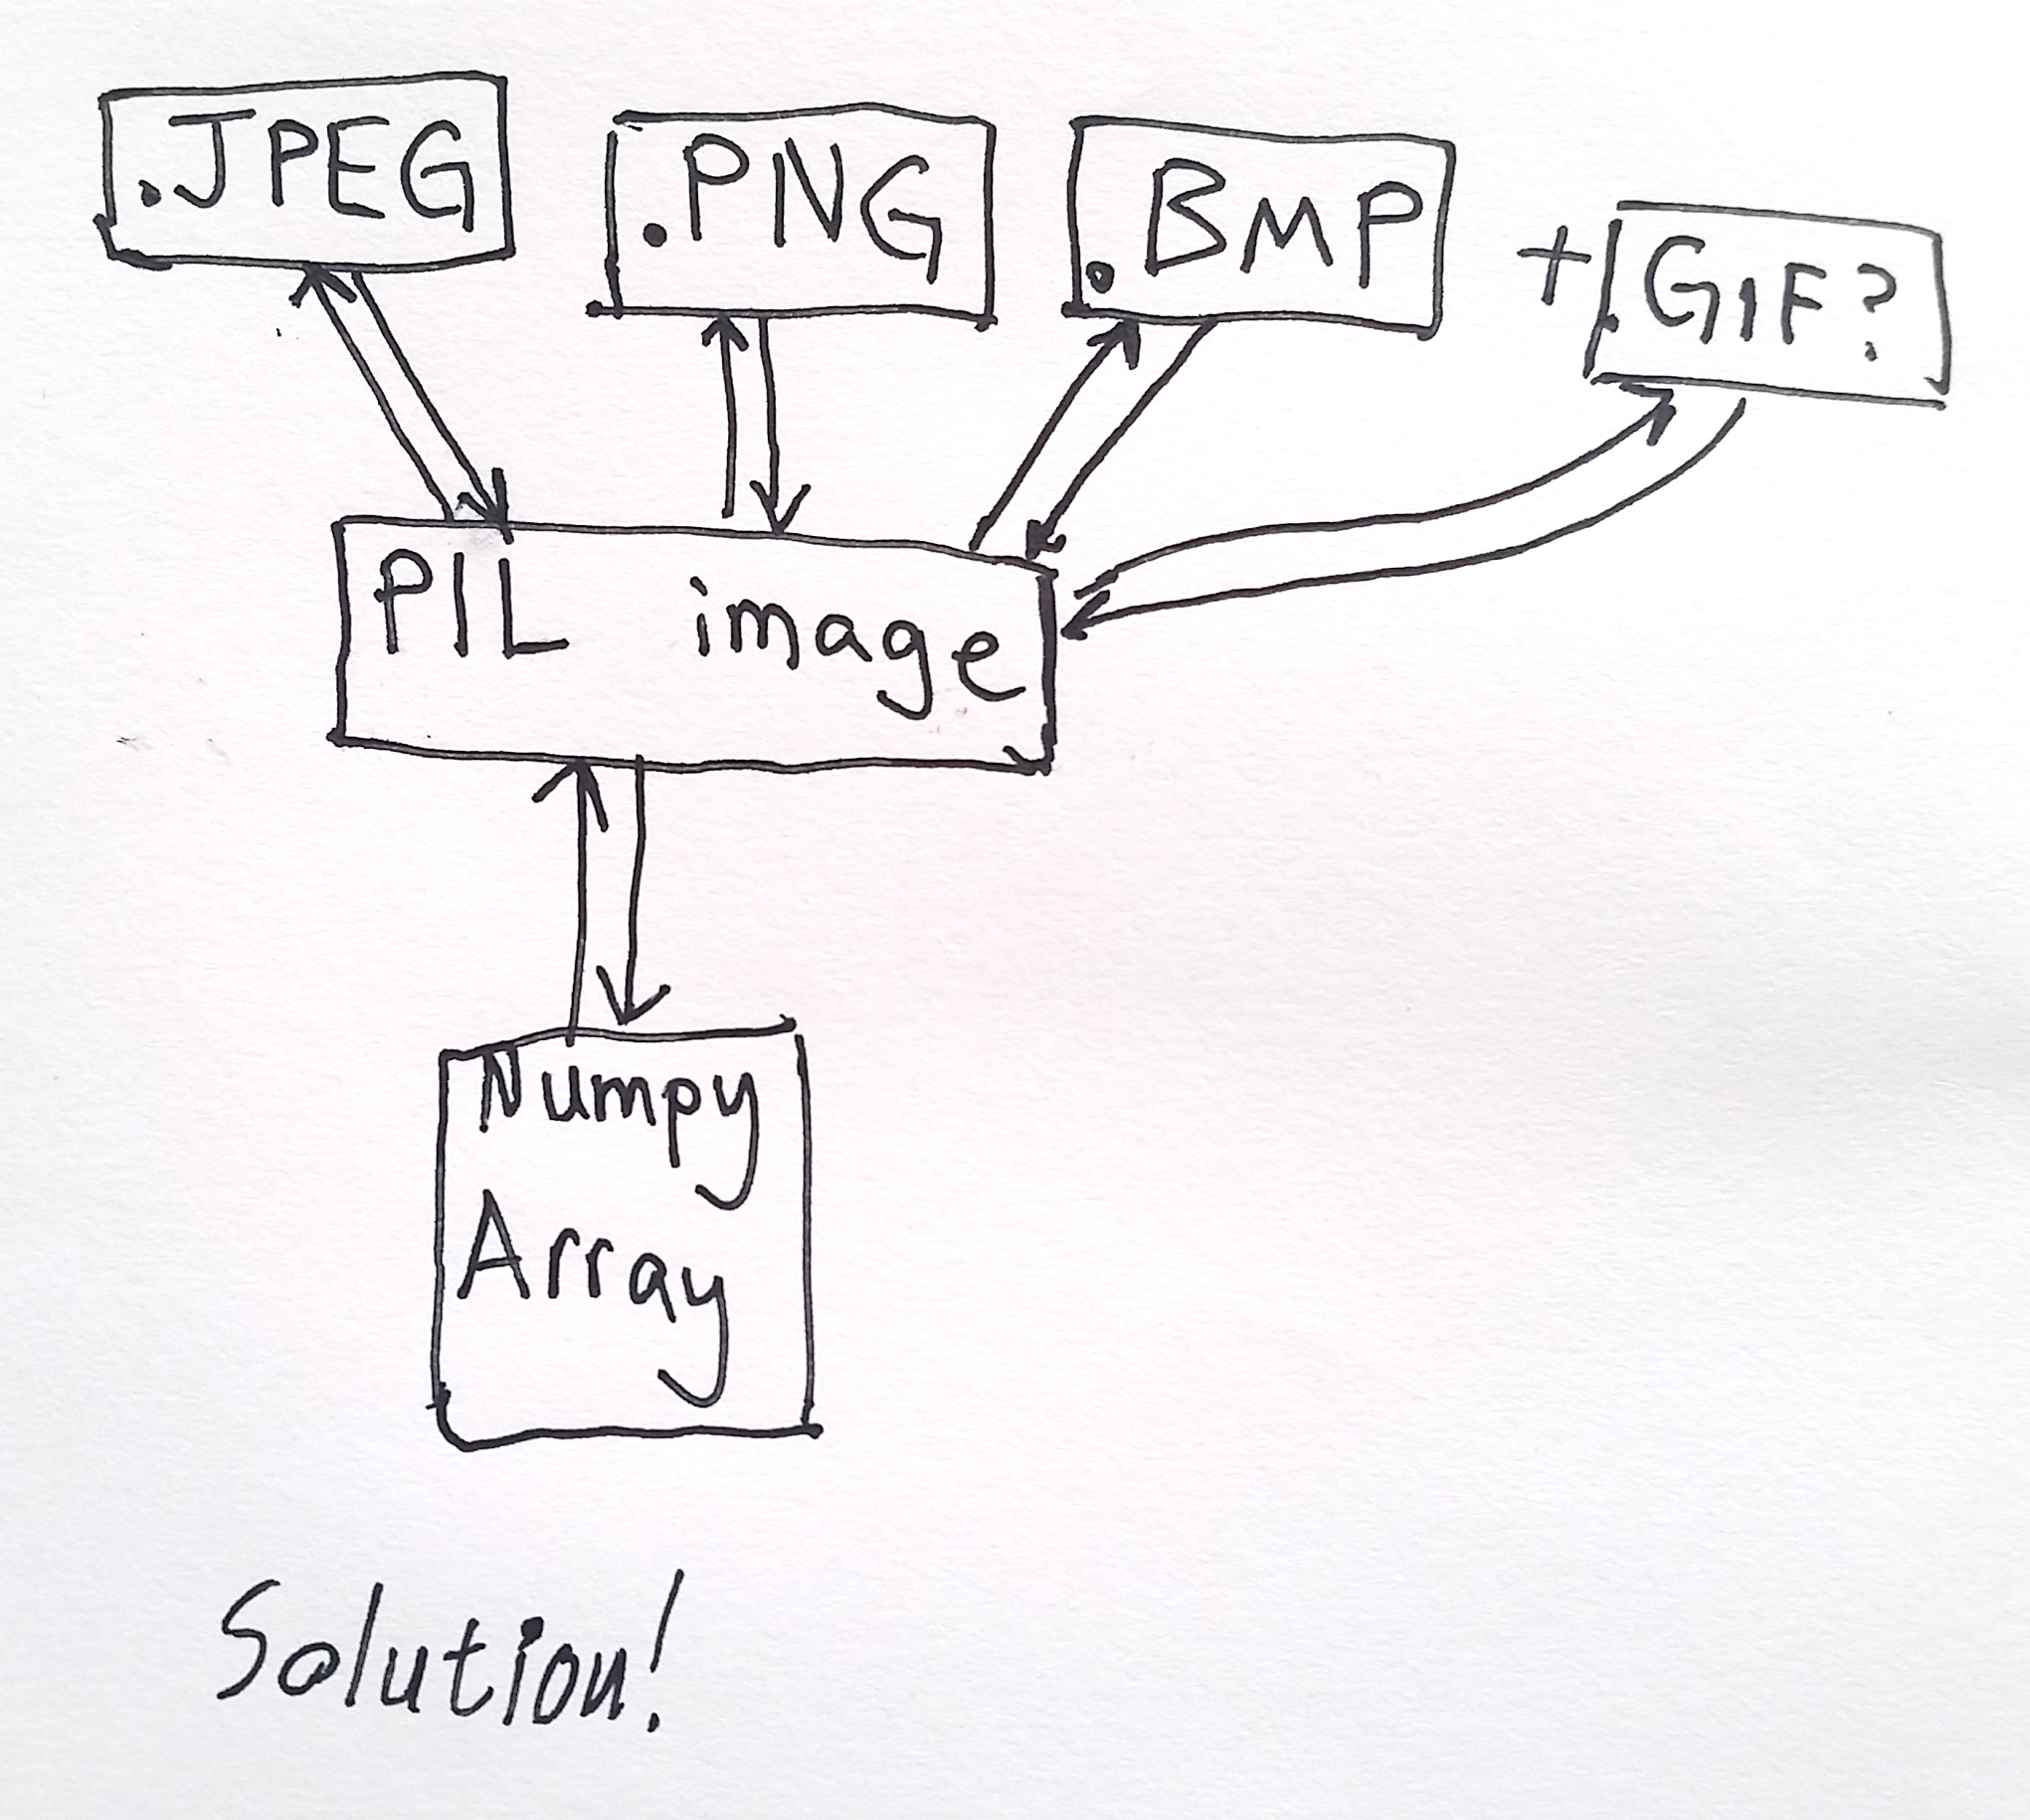 .JPEG
.PNG
.BMP
+ .GIF?
PIL image
Numpy
Array
Solution!